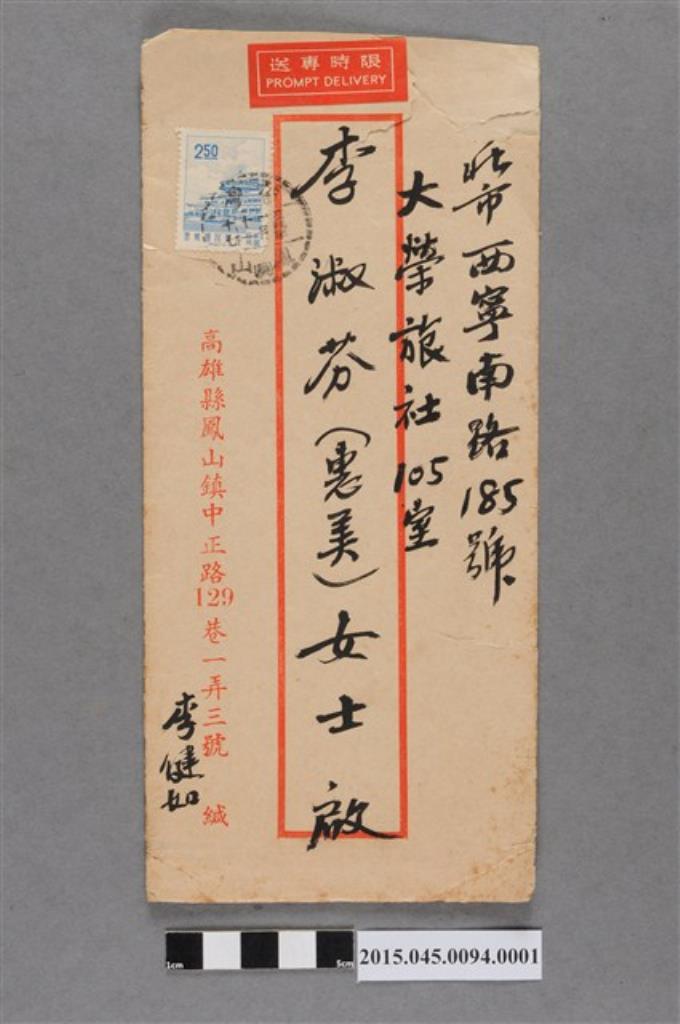 送專時限
PROMPT DELIVERY
250
北市西寧南路185號
大榮旅社105室
李淑芬(惠美)女士啟
高雄縣鳳山鎮中正路129巷一弄三號 緘
李健如
1cm
5cm
2015.045.0094.0001